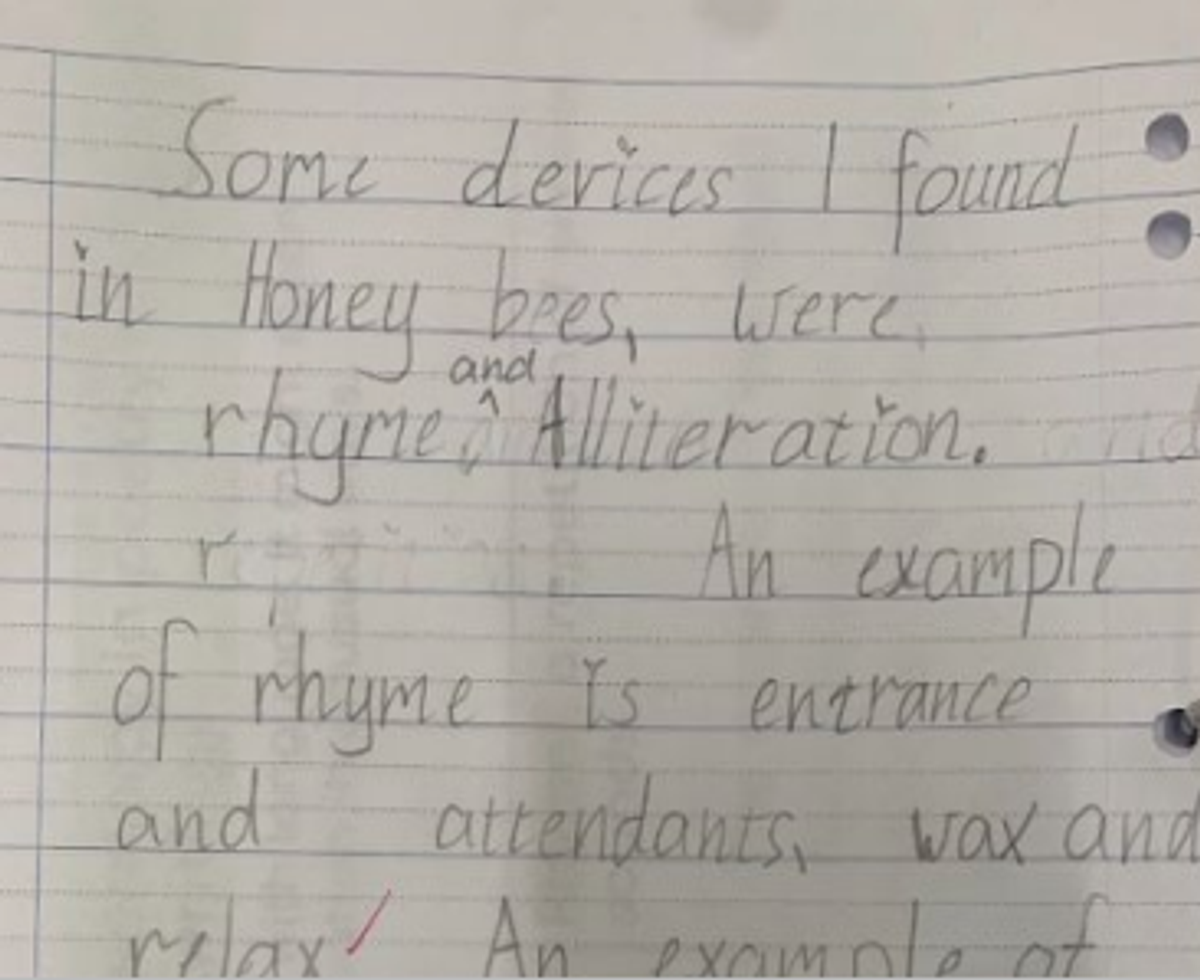 Some devices I found
in Honey bees, were
and
rhyme, ^ Alliteration.
r An example
of rhyme is entrance
and attendants, wax and
relax An example of